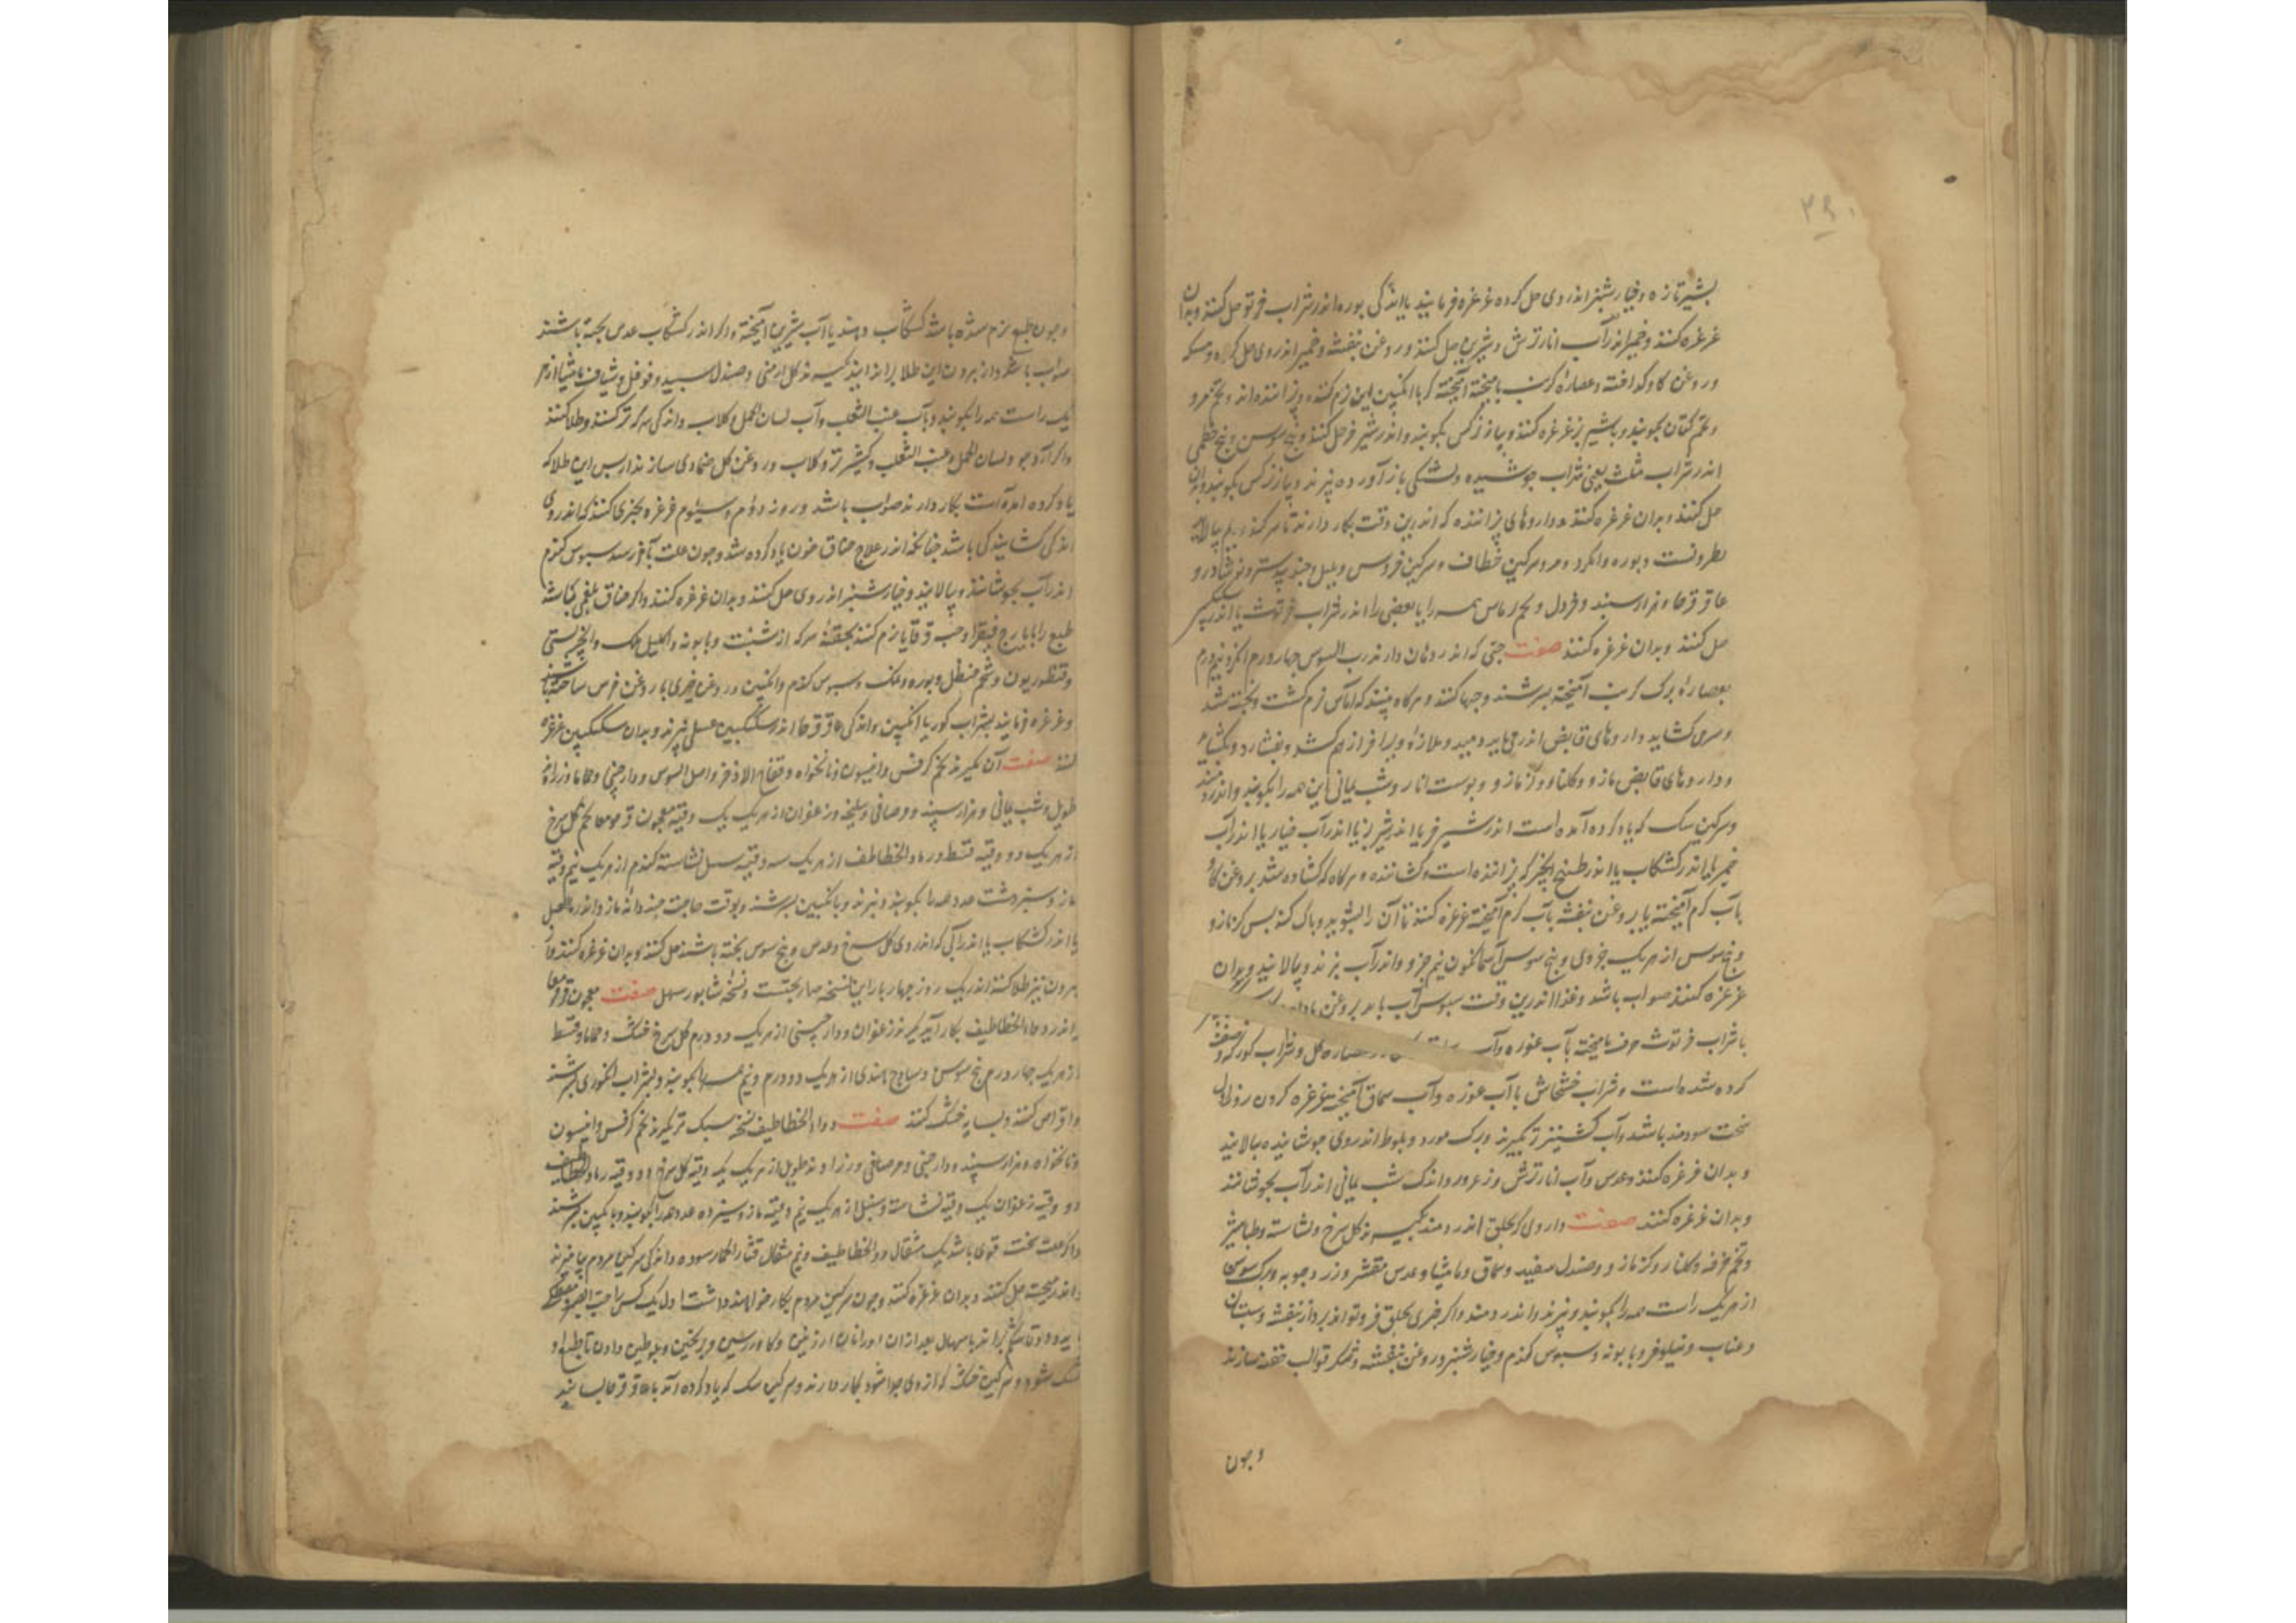 ۳۹۰
بشیر تازه و خیارشنبر اندر وی حل کرده غرغره فرمایند یا اندکی بوره اندر شراب فرتوت حل کنند و بدان
غرغره کنند و خمیر اندر آب انار ترش و شیرین حل کنند و روغن بنفشه و خمیر اندر وی حل کرده و مسکه
و روغن کاو کداخته و عصاره کرنب بامیخته آمیخته کر با انکبین این نرم کننده و پزاننده اند و تخم مرو
و تخم کتان بکوبند و باشیر بز غرغره کنند و پیاز نرکس بکوبند و اندر شیر خر حل کنند و بیخ سوسن و بیخ خطمی
اندر شراب مثلث یعنی شراب جوشیده و بشکی باز آورده بپزند و پیاز نرکس بکوبند و بدان
حل کنند و بدان غرغره کنند داروهای پزاننده که اندرین وقت بکار دارند تا سر کند
نطرونست و بوره و انکزد و مر و سرکین خطاف و سرکین خروس و پلپل و جندبیدستر و نوشادر و
عاقرقرحا و هزارسبند و خردل و تخم همه را یا بعضی را اندر شراب فرتوت یا اندر
حل کنند و بدان غرغره کنند صفت حبی که اندر دهان دارند رب السوس چهار درم انکزد نیم درم
بعصاره برک کرنب آمیخته بسرشند و حبها کنند و هرکاه بینند که اماس نرم کشت و پخته شد
و سر می کشاید داروهای قابض اندر می باید دمید و ملازه ویرا فراز هم کشد و بفشارد و بکشاید
و داروهای قابض مازو و کلنار و کزمازو و پوست انار و شب یمانی این همه را بکوبند و اندر دمند
و سرکین سک که یاد کرده آمده است اندر شیر خر یا اندر شیر بز یا اندر آب خیار یا اندر آب
خمیر یا اندر کشکاب یا اندر طبیخ انجیر که پزاننده است و کشاننده و هرکاه که کشاده شد بروغن کاو
بآب کرم آمیخته یا بروغن بنفشه بآب کرم آمیخته غرغره کنند تا آن را بشوید و پاک کند پس کزمازو
و بیخ سوسن از هریک جزوی و بیخ سوسن آسمانکون نیم جزو و اندر آب بپزند و پالایند و بدان
غرغره کنند صواب باشد و غذا اندرین وقت سبوس آب باید بروغن بادام
با شراب فرتوت صرف بامیخته بآب غوره و آب کل و شراب کوز که و صفت
کرده شده است و شراب خشخاش با آب غوره و آب سماق آمیخته غرغره کردن روز اول
سخت سودمند باشد و آب کشنیز تر بکیرند و برک مورد و بلوط اندر وی جوشانیده بالایند
و بدان غرغره کنند و عدس و آب انار ترش و زعرور و اندک شب یمانی اندر آب بجوشانند
و بدان غرغره کنند صفت داروی که بحلق اندر دمند بکیرند کل سرخ و نشاسته و طباشیر
و تخم خرفه و کلنار و کزمازو و صندل سفید و سماق و مامیثا و عدس مقشر و زرد چوبه و برک سوسن
از هریک راست همه را بکوبند و بپزند و اندر دمند و اکر چیزی بحلق فرو تواند برد از بنفشه و سبستان
و عناب و نیلوفر و بابونه و سبوس کندم و خیارشنبر و روغن بنفشه و شکر قوالب حقنه سازند
و چون
و چون طبع نرم شده باشد کشکاب دهند یا آب شیرین آمیخته و اکر اندر کشکاب عدس پخته باشند
صواب باشد و از بیرون این طلا براندایند بکیرند کل ارمنی و صندل سپید و فوفل و شیاف مامیثا از هر
یک راست همه را بکوبند و بآب عنب الثعلب و آب لسان الحمل و کلاب و اندکی سرکه تر کنند و طلا کنند
و اکر آرد جو و لسان الحمل و عنب الثعلب و کشنیز تر و کلاب و روغن کل ضمادی سازند از پس این طلا که
یاد کرده آمده است بکار دارند صواب باشد و روز دوم و سیوم غرغره بچیزی کنند که اندر وی
اندکی کشایندکی باشد چنانکه اندر علاج خناق خون یاد کرده شد و چون علت بآخر رسد سبوس کندم
اندر آب بجوشانند و پالایند و خیارشنبر اندر وی حل کنند و بدان غرغره کنند و اکر خناق بلغمی باشد
طبع را بایارج فیقرا و حب قوقایا نرم کنند بحقنه سرکه از شبت و بابونه و اکلیل ملک و انجیر بستی
و قنطوریون و شحم حنظل و بوره و نمک و سبوس کندم و انکبین و روغن خیری یا روغن نرکس ساخته باشند
و غرغره فرمایند بشراب کوز یا انکبین و اندکی عاقرقرحا اندر سکنکبین عسلی بپزند و بدان سکنکبین غرغره
کنند صفت آن بکیرند تخم کرفس و انیسون و نانخواه و فقاح الاذخر و اصل السوس و دارچینی و حماما و زراوند
طویل و شب یمانی و هزارسپند و مر صافی و سلیخه و زعفران از هریک یک وقیه معجون قوقومعا تخم کل سرخ
از هریک دو وقیه قسط و رماد الخطاطف از هریک سه وقیه سنبل نشاسته کندم از هریک نیم وقیه
مازو سبز هشت عدد همه را بکوبند و بپزند و با انکبین بسرشند و بوقت حاجت چند دانه مازو اندر ماء العسل
یا اندر کشکاب یا اندر آبی که اندر وی کل سرخ و عدس و بیخ سوس پخته باشند حل کنند و بدان غرغره کنند و از
بیرون نیز طلا کنند اندر یک روز چهار بار این نسخه صاربختست و نسخه شابور سهل صفت معجون قوقومعا
اندر دواء الخطاطیف بکار آید بکیرند زعفران و دارچینی از هریک دو درم کل سرخ خشک و حماما و قسط
از هریک چهار درم بیخ سوس و ساذج هندی از هریک دو درم و نیم همه را بکوبند و بشراب انکوری بسرشند
و اقراص کنند و بسایه خشک کنند صفت دواء الخطاطیف نسخه سبک تر بکیرند تخم کرفس و انیسون
و نانخواه و هزارسپند و دارچینی و مر صافی و زراوند طویل از هریک یک وقیه کل سرخ دو وقیه رماد الخطاطیف
دو وقیه زعفران یک وقیه نشاسته و سنبل از هریک نیم وقیه مازو سبز ده عدد همه را بکوبند و با انکبین بسرشند
و اکر علت سخت قوی باشد یک مثقال دواء الخطاطیف و نیم مثقال قثاء الحمار سوده و اندکی سرکین مردم بیامیزند
و اندر حل کنند و بدان غرغره کنند و چون سرکین مردم بکار خواهند داشت اول یک کس را
بعد ازان او را نان ارزنین و کاورسین و برنجین و بلوطین دادن تا طبع او
خشک شود و سرکین خشک که از وی جدا شود بکار دارند و سرکین سک که یاد کرده آمد با عاقرقرحا بسایند